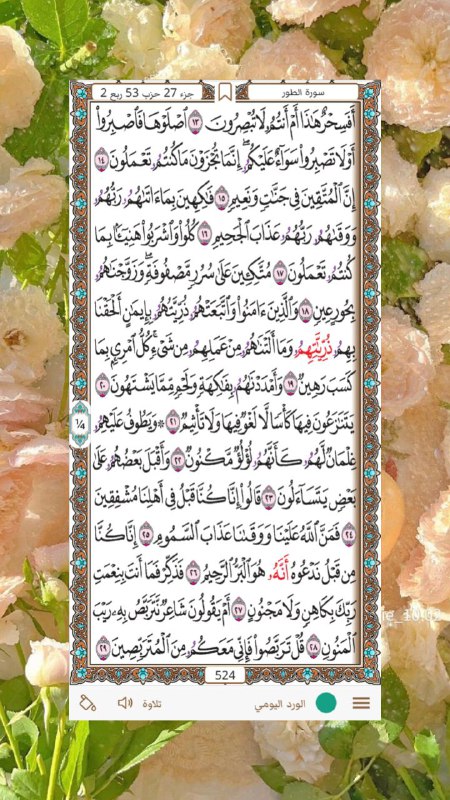 جزء 27 حزب 53 ربع 2
سورة الطور
أَفَسِحْرٌ هَٰذَا أَمْ أَنتُمُۥ لَا تُبْصِرُونَ ١٣ ٱصْلَوْهَا فَٱصْبِرُوٓا۟
أَوْ لَا تَصْبِرُوا۟ سَوَآءٌ عَلَيْكُمُۥ إِنَّمَا تُجْزَوْنَ مَا كُنتُمُۥ تَعْمَلُونَ ١٤
إِنَّ ٱلْمُتَّقِينَ فِي جَنَّٰتٍ وَنَعِيمٍ ١٥ فَٰكِهِينَ بِمَا ءَاتَىٰهُمُۥ رَبُّهُمُۥ
وَوَقَىٰهُمُۥ رَبُّهُمُۥ عَذَابَ ٱلْجَحِيمِ ١٦ كُلُوا۟ وَٱشْرَبُوا۟ هَنِيٓـًٔا بِمَا
كُنتُمُۥ تَعْمَلُونَ ١٧ مُتَّكِـِٔينَ عَلَىٰ سُرُرٍ مَّصْفُوفَةٍ وَزَوَّجْنَٰهُمُۥ
بِحُورٍ عِينٍ ١٨ وَٱلَّذِينَ ءَامَنُوا۟ وَٱتَّبَعَتْهُمُۥ ذُرِّيَّتُهُمُۥ بِإِيمَٰنٍ أَلْحَقْنَا
بِهِمُۥ ذُرِّيَّٰتِهِمُۥ وَمَآ أَلَتْنَٰهُمُۥ مِنْ عَمَلِهِمُۥ مِن شَيْءٍ كُلُّ ٱمْرِيٍٕ بِمَا
كَسَبَ رَهِينٌ ١٩ وَأَمْدَدْنَٰهُمُۥ بِفَٰكِهَةٍ وَلَحْمٍ مِّمَّا يَشْتَهُونَ ٢٠
يَتَنَٰزَعُونَ فِيهَا كَأْسًا لَّا لَغْوٌ فِيهَا وَلَا تَأْثِيمٌ ٢١ ۞وَيَطُوفُ عَلَيْهِمُۥ
غِلْمَانٌ لَّهُمُۥ كَأَنَّهُمُۥ لُؤْلُؤٌ مَّكْنُونٌ ٢٢ وَأَقْبَلَ بَعْضُهُمُۥ عَلَىٰ
بَعْضٍ يَتَسَآءَلُونَ ٢٣ قَالُوٓا۟ إِنَّا كُنَّا قَبْلُ فِيٓ أَهْلِنَا مُشْفِقِينَ
٢٤ فَمَنَّ ٱللَّهُ عَلَيْنَا وَوَقَىٰنَا عَذَابَ ٱلسَّمُومِ ٢٥ إِنَّا كُنَّا
مِن قَبْلُ نَدْعُوهُ أَنَّهُۥ هُوَ ٱلْبَرُّ ٱلرَّحِيمُ ٢٦ فَذَكِّرْ فَمَآ أَنتَ بِنِعْمَتِ
رَبِّكَ بِكَاهِنٍ وَلَا مَجْنُونٍ ٢٧ أَمْ يَقُولُونَ شَاعِرٌ نَّتَرَبَّصُ بِهِۦ رَيْبَ
ٱلْمَنُونِ ٢٨ قُلْ تَرَبَّصُوا۟ فَإِنِّي مَعَكُمُۥ مِنَ ٱلْمُتَرَبِّصِينَ ٢٩
¼
524
الورد اليومي
تلاوة